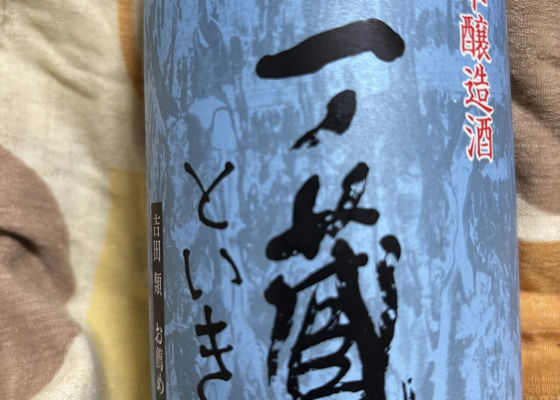 本醸造酒
一ノ蔵
といき
吉田類 お薦め